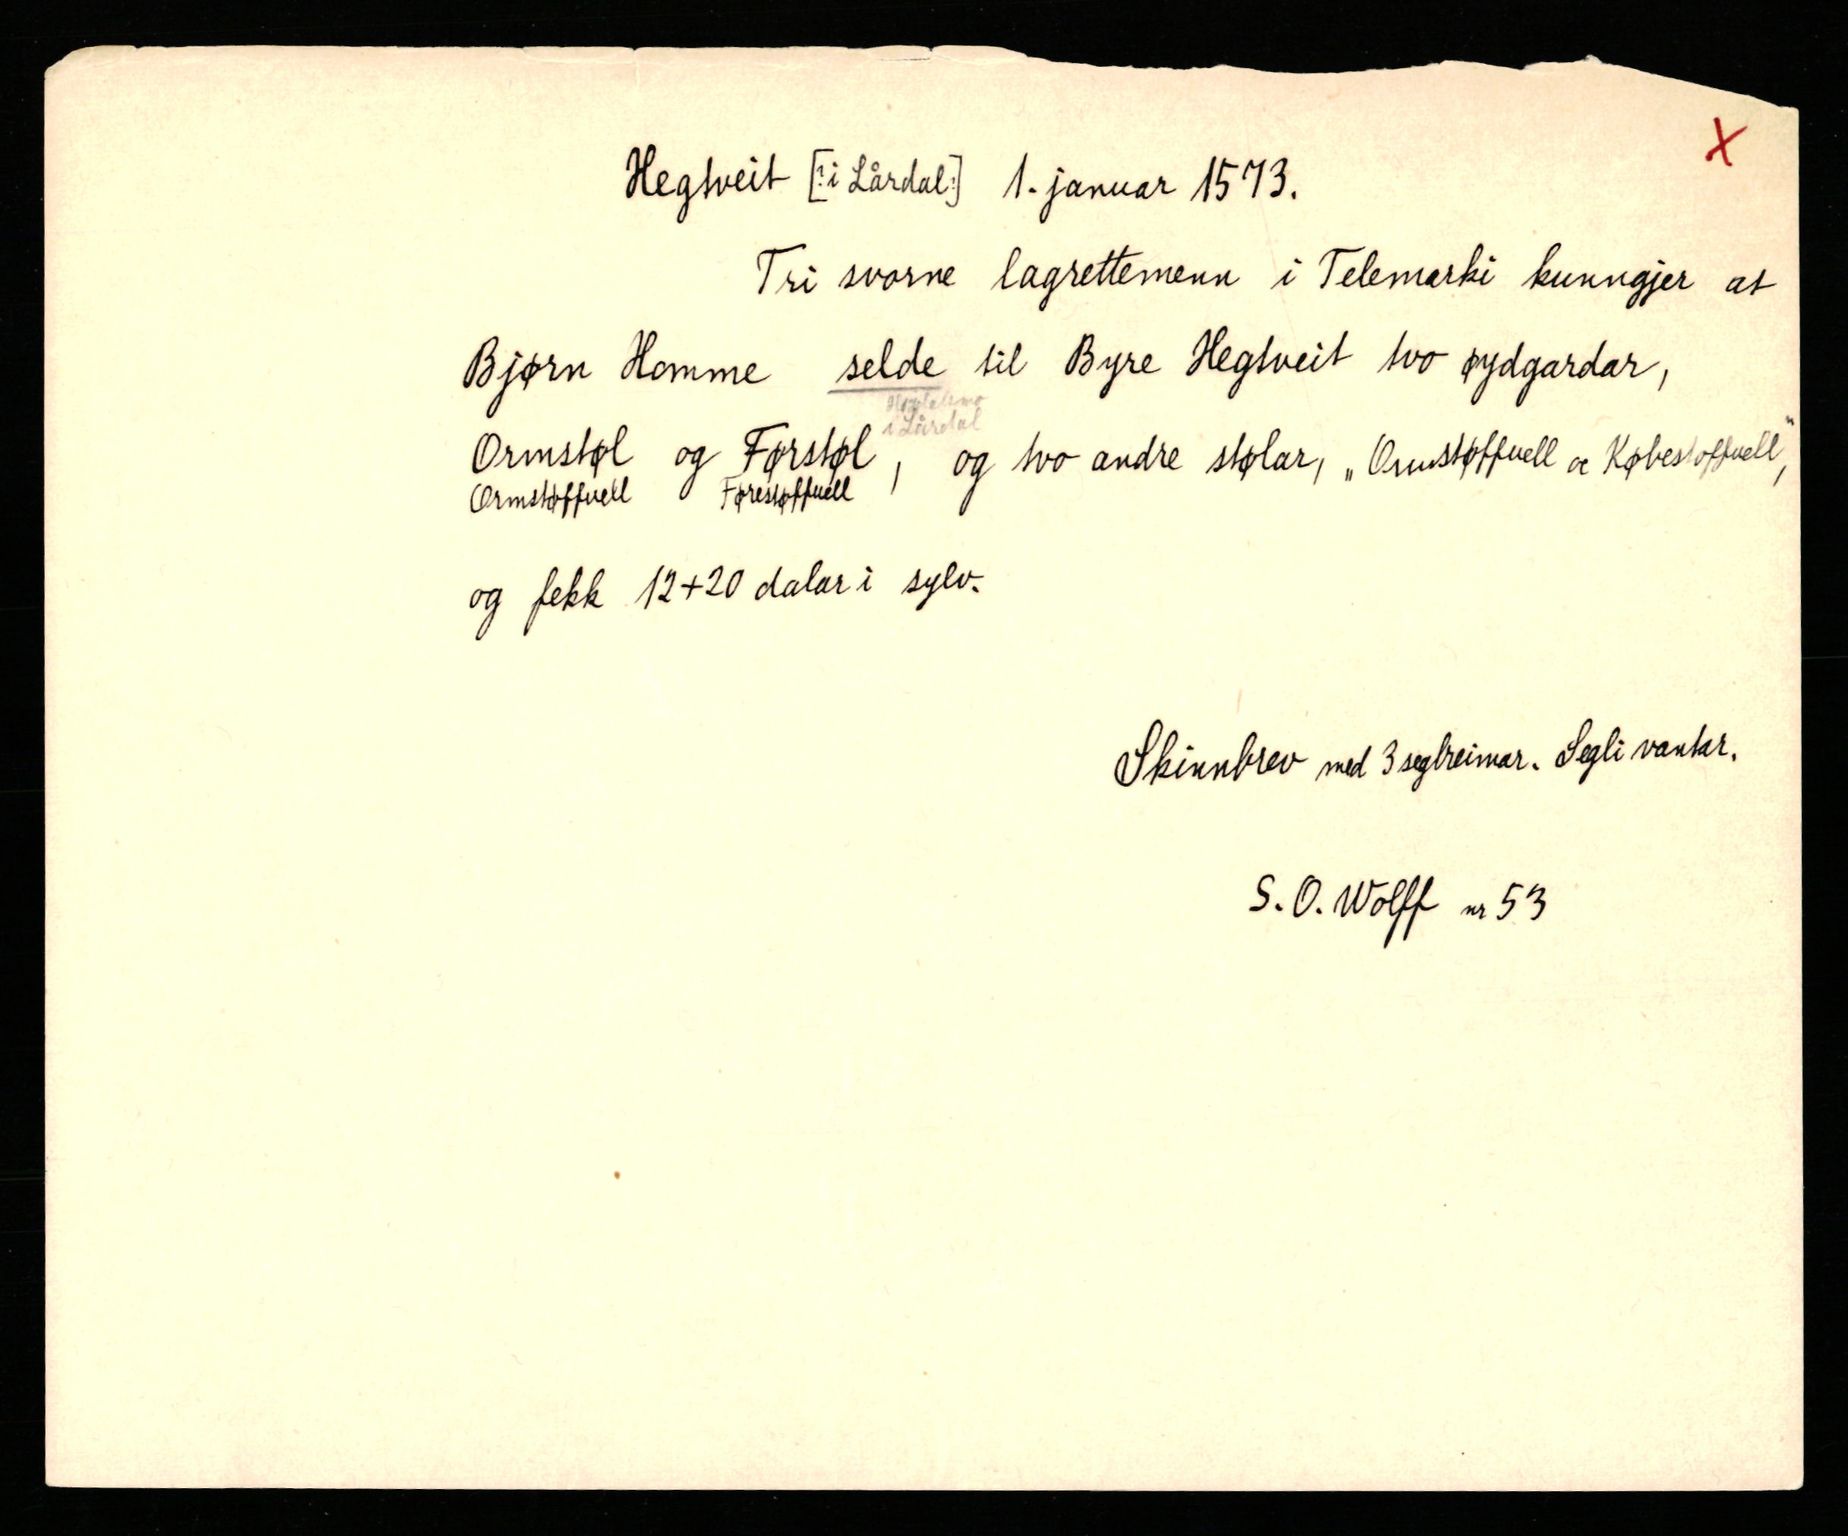 X
Hegtveit [: i Lårdal :] 1. januar 1573.
Tri svorne lagrettemenn i Telemarki kunngjer at
Bjørn Homme selde til Byre Hegtveit tvo øydgardar,
i Lårdal
Ormstøl og Førstøl, og tvo andre stølar, „Ormstøffuell oc Købestøffuell",
Ormstøffuell Førestøffuell
og fekk 12+20 dalar i sylv.
Skinnbrev med 3 seglreimar. Segli vantar.
S. O. Wolff nr 53